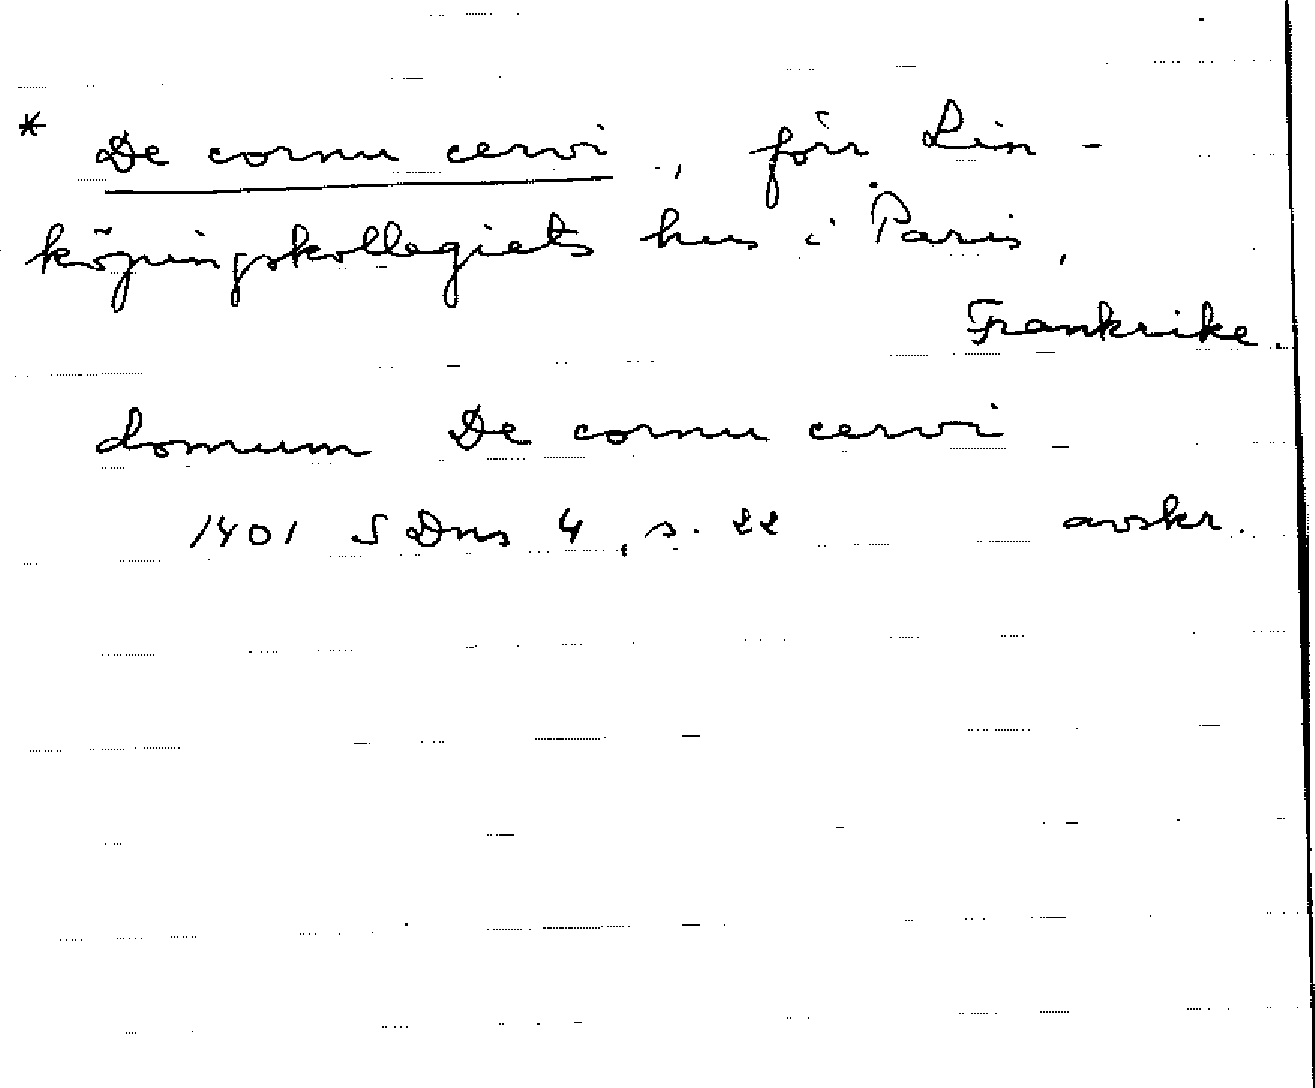 * De cornu cervi, förr Lin-
köpingskollegiets hus i Paris,
Frankrike.
domum De cornu cervi
1401 SDns 4, s. 22 avskr.